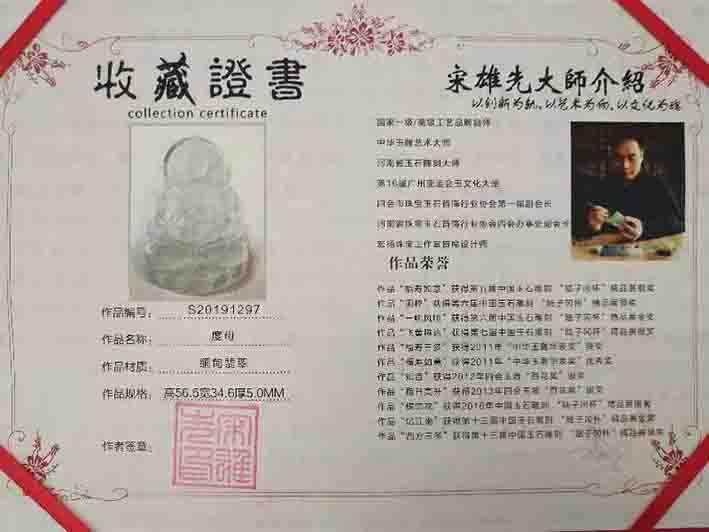 收藏證書
collection certificate
作品编号: S20191297
作品名称: 度母
作品材质: 缅甸翡翠
作品规格: 高56.5宽34.6厚5.0MM
作者签章:
宋雄先大師介紹
以创新为轨、以艺术为而、以文化为魂
国家一级/高级工艺品雕刻师
中华玉雕艺术大师
河南省玉石雕刻大师
第16届广州亚运会玉文化大使
四会市珠宝玉石首饰行业协会第一届副会长
河南省珠宝玉石首饰行业协会四会办事处副会长
宏扬珠宝工作室首席设计师
作品荣誉
作品“福寿如意”获得第五届中国玉石雕刻 “陆子冈杯”精品展银奖
作品 获得第六届中国玉石雕刻 “陆子冈杯”精品展银奖
作品“一帆风顺”获得第六届中国玉石雕刻 “陆子冈杯”精品展金奖
作品 获得第七届中国玉石雕刻 “陆子冈杯”精品展银奖
作品“福寿三多”获得2011年“中华玉雕 奖”银奖
作品“福寿如意”获得2011年“中华玉雕 奖”优秀奖
作品 获得2012年四会玉器“百花奖”银奖
作品 获得2013年四会玉器“百花奖”银奖
作品 获得2016年中国玉石雕刻 “陆子冈杯”精品展
作品“忆江南”获得第十三届中国玉石雕刻 “陆子冈杯”精品展金奖
作品“西方三圣”获得第十三届中国玉石雕刻 “陆子冈杯”精品展银奖